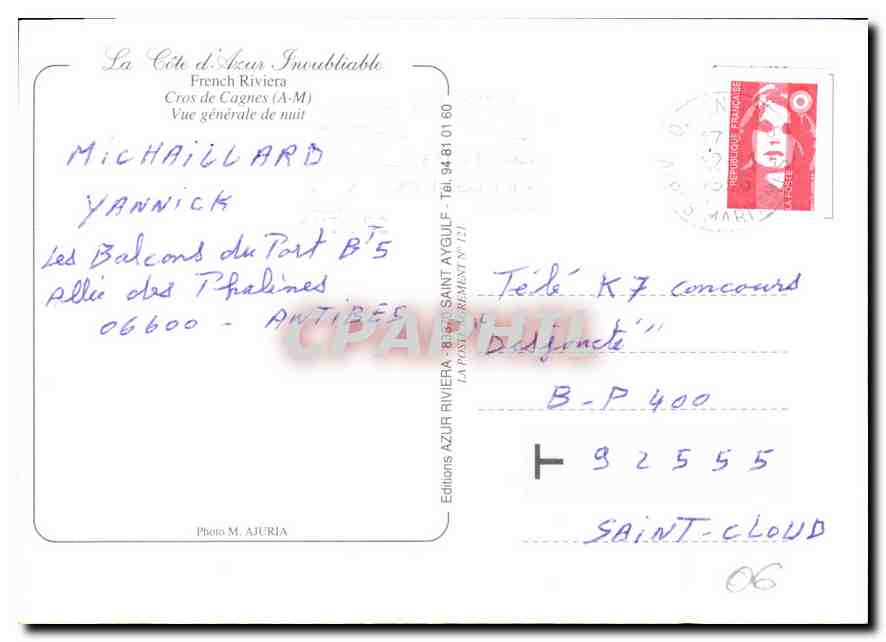 La Côte d'Azur Inoubliable
French Riviera
Cros de Cagnes (A-M)
Vue générale de nuit
MICHAILLARD
YANNICK
Les Balcons du Port BT5
Allée des Phalènes
06600 - ANTIBES
Photo M. AJURIA
Editions AZUR RIVIERA - 83370 SAINT AYGULF - Tél. 94 81 01 60
LA POSTE AGREMENT N° 121
RÉPUBLIQUE FRANÇAISE
LA POSTE
Télé K7 concours
"Disjoncté"
B-P 400
T 92555
SAINT-CLOUD
06
CPAPHIL